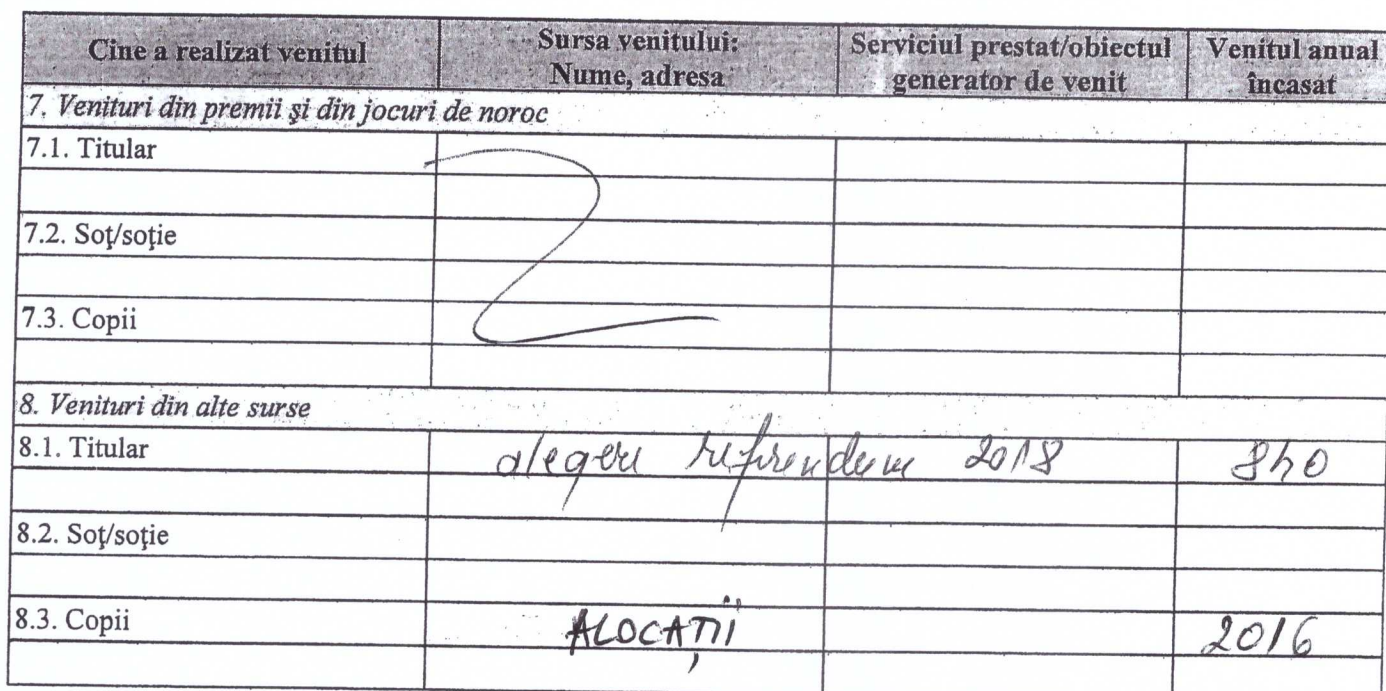 Cine a realizat venitul Sursa venitului: Serviciul prestat/obiectul Venitul anual
Nume, adresa generator de venit încasat
7. Venituri din premii şi din jocuri de noroc
7.1. Titular
7.2. Soţ/soţie
7.3. Copii
8. Venituri din alte surse
8.1. Titular alegeri referendum 2018 840
8.2. Soţ/soţie
8.3. Copii ALOCAȚII 2016